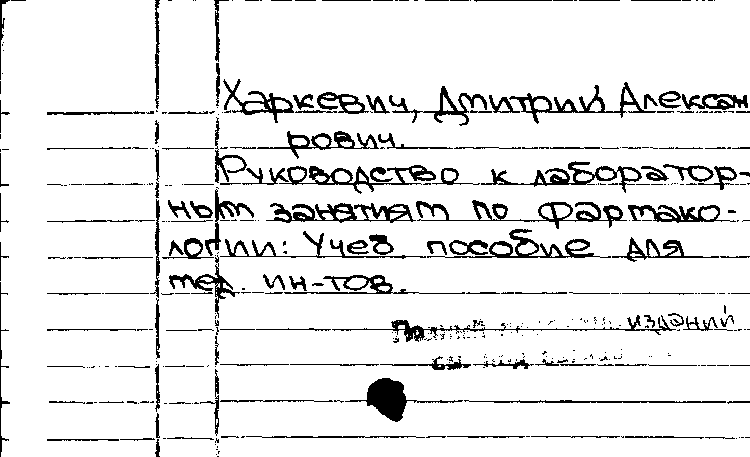 Харкевич, Дмитрий Алексан
рович.
Руководство к лаборатор-
ным занятиям по фармако-
логии: Учеб. пособие для
мед. ин-тов.
Полный изданий
см. под